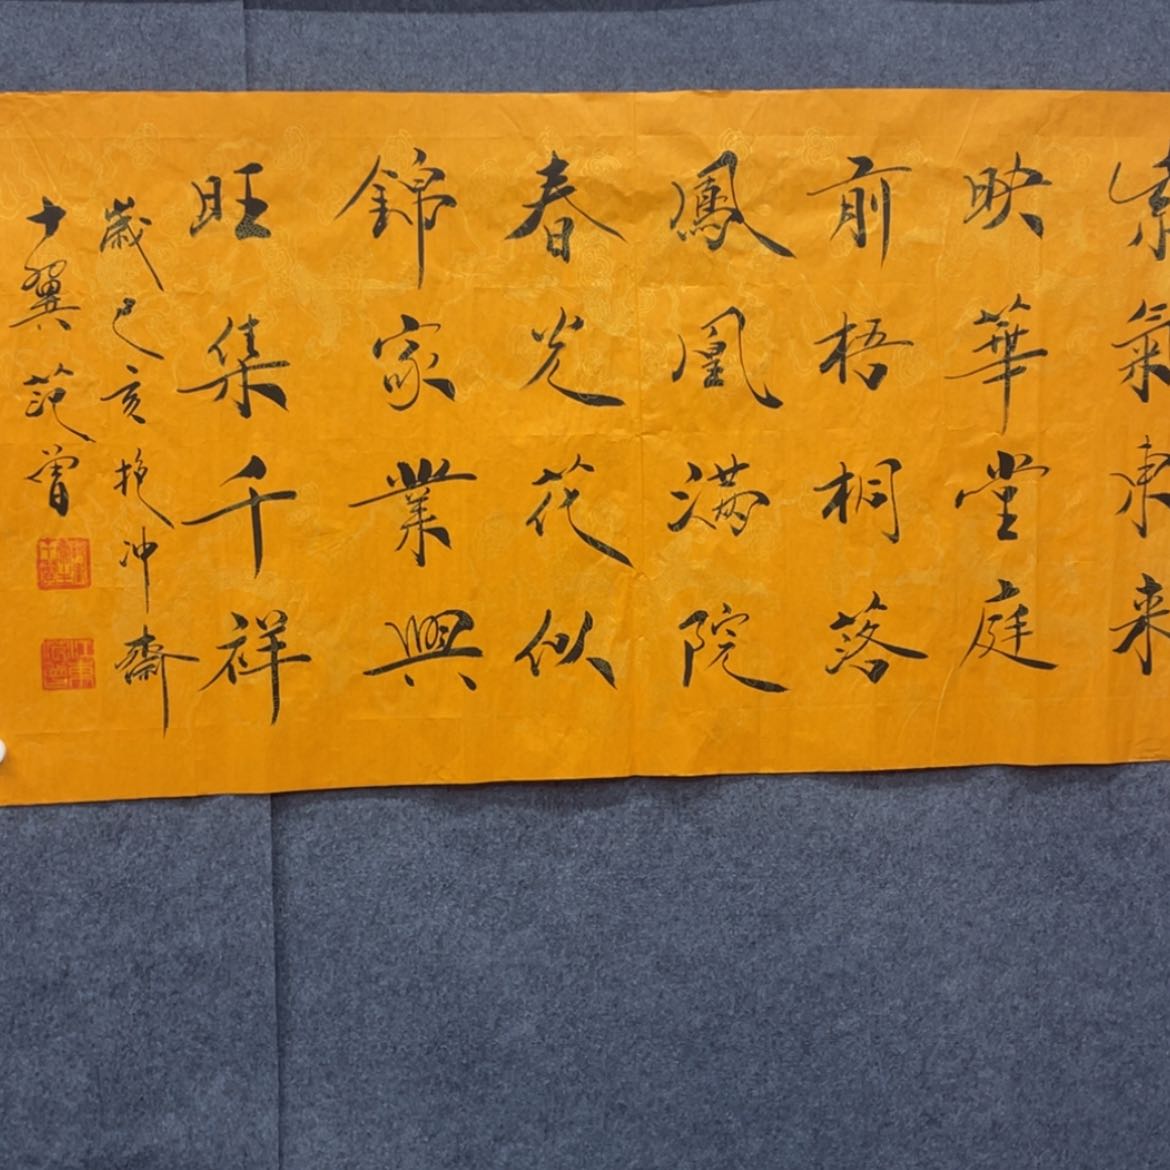 紫氣東来
映華堂庭
前梧桐落
鳳凰满院
春光花似
錦家業興
旺集千祥
歲己亥抱冲齋
十翼范曾